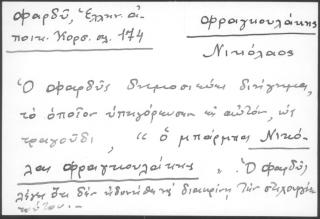 Φαρδύ, Ἑλλην. ἀ-
ποικ. Κορσ. σελ. 174
Φραγκουλάκης
Νικόλαος
Ὁ Φαρδὺς δημοσιεύει διήγημα,
τὸ ὁποῖον ὑπηγόρευσαν εἰς αὐτόν, ὡς
τραγοῦδι, " ὁ μπάρμπα Νικό-
λας Φραγκουλάκης ". Ὁ Φαρδὺς
λέγει ὅτι δὲν ἠδυνήθη νὰ διακρίνῃ τὴν στιχουργίαν
τούτου.-